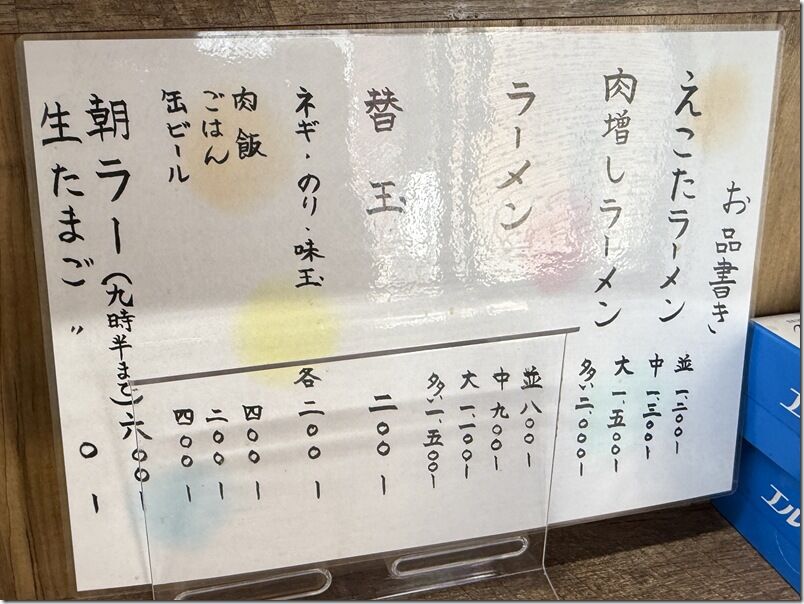 お品書き
えこたラーメン
肉増しラーメン
並 一、二〇〇ー
中 一、三〇〇ー
大 一、五〇〇ー
多い 二、〇〇〇ー
ラーメン
並 八〇〇ー
中 九〇〇ー
大 一、一〇〇ー
多い 一、五〇〇ー
替玉 二〇〇ー
ネギ・のり・味玉 各二〇〇ー
肉飯 四〇〇ー
ごはん 二〇〇ー
缶ビール 四〇〇ー
朝ラー（九時半まで）六〇〇ー
生たまご 〃 〇ー
エル